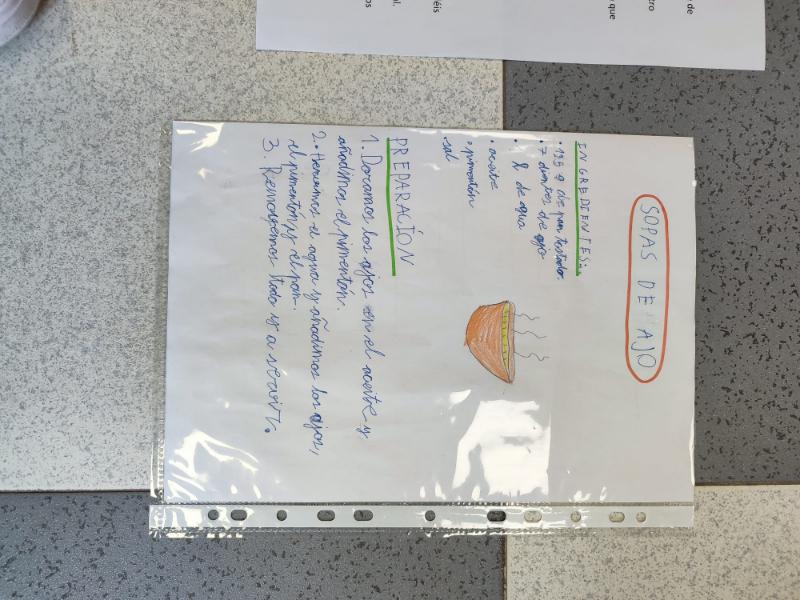 SOPAS DE AJO
INGREDIENTES:
• 125 g de pan tostado.
• 7 dientes de ajo
• l de agua
• aceite
• pimentón
• sal
PREPARACIÓN
1. Doramos los ajos en el aceite y
añadimos el pimentón.
2. Hervimos el agua y añadimos los ajos,
el pimentón y el pan.
3. Remogemos todo y a servir.
de
tro
que
éis
al.
os